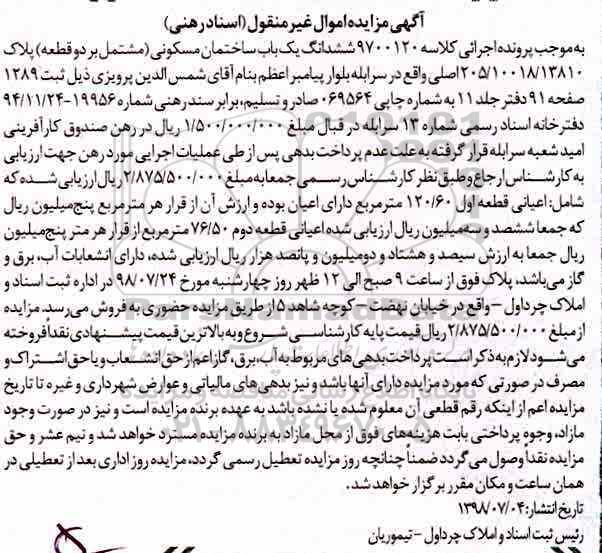 آگهی مزایده اموال غیر منقول (اسناد رهنی)
به موجب پرونده اجرائی کلاسه ۹۷۰۰۱۲۰ ششدانگ یک باب ساختمان مسکونی (مشتمل بر دو قطعه) پلاک
۲۰۵/۱۰۰۱۸/۱۳۸۱۰ اصلی واقع در سرابله بلوار پیامبر اعظم بنام آقای شمس الدین پرویزی ذیل ثبت ۱۲۸۹
صفحه ۹۱ دفتر جلد ۱۱ به شماره چاپی ۰۶۹۵۶۴ صادر و تسلیم، برابر سند رهنی شماره ۱۹۹۵۶-۹۴/۱۱/۲۴
دفترخانه اسناد رسمی شماره ۱۳ سرابله در قبال مبلغ ۱/۵۰۰/۰۰۰/۰۰۰ ریال در رهن صندوق کارآفرینی
امید شعبه سرابله قرار گرفته به علت عدم پرداخت بدهی پس از طی عملیات اجرایی مورد رهن جهت ارزیابی
به کارشناس ارجاع و طبق نظر کارشناس رسمی جمعا به مبلغ ۲/۸۷۵/۵۰۰/۰۰۰ ریال ارزیابی شده که
شامل: اعیانی قطعه اول ۱۲۰/۶۰ مترمربع دارای اعیان بوده و ارزش آن از قرار هر مترمربع پنج میلیون ریال
که جمعا ششصد و سه میلیون ریال ارزیابی شده اعیانی قطعه دوم ۷۶/۵۰ مترمربع از قرار هر متر پنج میلیون
ریال جمعا به ارزش سیصد و هشتاد و دو میلیون و پانصد هزار ریال ارزیابی شده، دارای انشعابات آب، برق و
گاز می باشد، پلاک فوق از ساعت ۹ صبح الی ۱۲ ظهر روز چهارشنبه مورخ ۹۸/۰۷/۲۴ در اداره ثبت اسناد و
املاک چرداول - واقع در خیابان نهضت - کوچه شاهد ۵ از طریق مزایده حضوری به فروش می رسد. مزایده
از مبلغ ۲/۸۷۵/۵۰۰/۰۰۰ ریال قیمت پایه کارشناسی شروع و به بالاترین قیمت پیشنهادی نقدا فروخته
می شود لازم به ذکر است پرداخت بدهی های مربوط به آب، برق، گاز اعم از حق انشعاب و یا حق اشتراک و
مصرف در صورتی که مورد مزایده دارای آنها باشد و نیز بدهی های مالیاتی و عوارض شهرداری و غیره تا تاریخ
مزایده اعم از اینکه رقم قطعی آن معلوم شده یا نشده باشد به عهده برنده مزایده است و نیز در صورت وجود
مازاد، وجوه پرداختی بابت هزینه های فوق از محل مازاد به برنده مزایده مسترد خواهد شد و نیم عشر و حق
مزایده نقداً وصول می گردد ضمناً چنانچه روز مزایده تعطیل رسمی گردد، مزایده روز اداری بعد از تعطیلی در
همان ساعت و مکان مقرر برگزار خواهد شد.
تاریخ انتشار: ۱۳۹۸/۰۷/۰۴
رئیس ثبت اسناد و املاک چرداول - تیموریان